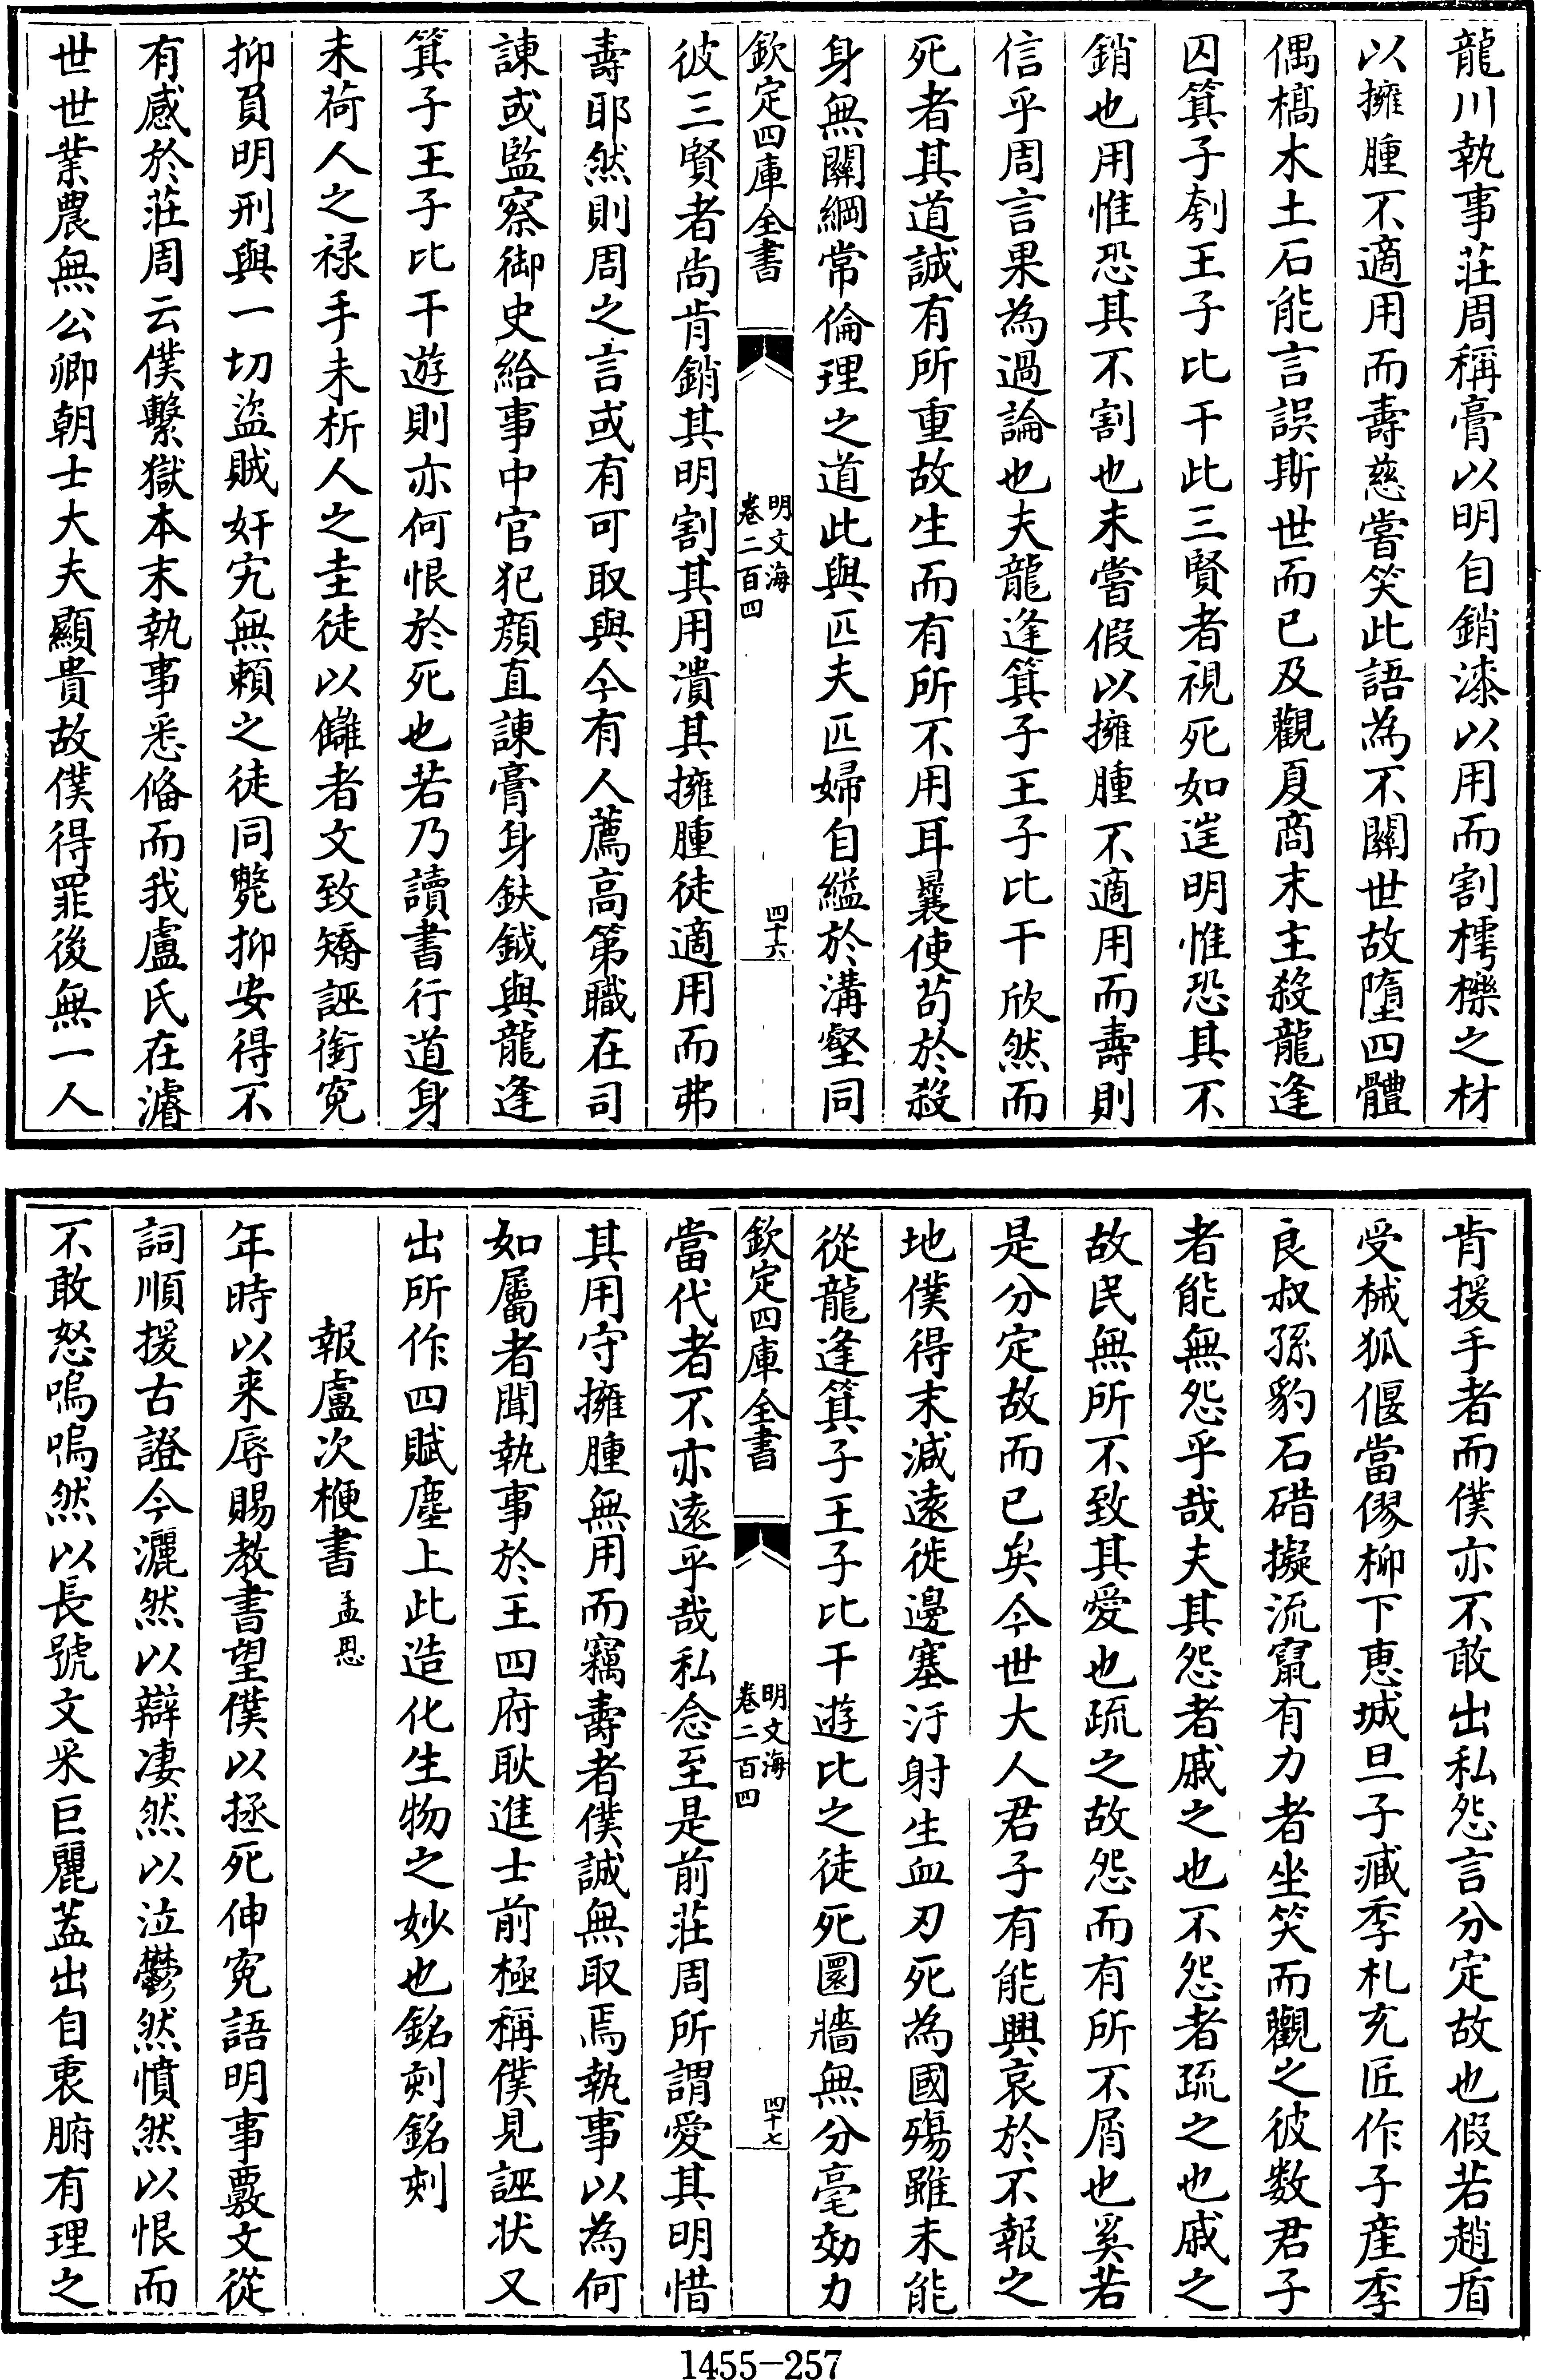 龍川執事莊周稱膏以明自銷漆以用而割樗櫟之材
以擁腫不適用而壽慈嘗笑此語為不關世故墮四體
偶槁木土石能言誤斯世而已及觀夏商末主殺龍逢
囚箕子刳王子比干此三賢者視死如遑明惟恐其不
銷也用惟恐其不割也未嘗假以擁腫不適用而壽則
信乎周言果為過論也夫龍逢箕子王子比干欣然而
死者其道誠有所重故生而有所不用耳曩使苟於殺
身無關綱常倫理之道此與匹夫匹婦自縊於溝壑同
欽定四庫全書
明文海
卷二百四
四十六
彼三賢者尚肯銷其明割其用潰其擁腫徒適用而弗
壽耶然則周之言或有可取與今有人薦高第職在司
諫或監察御史給事中官犯顏直諫膏身鈇鉞與龍逢
箕子王子比干遊則亦何恨於死也若乃讀書行道身
未荷人之祿手未析人之圭徒以讎者文致矯誣銜寃
抑負明刑與一切盜賊奸宄無賴之徒同斃抑安得不
有感於莊周云僕繫獄本末執事悉俻而我盧氏在濬
世世業農無公卿朝士大夫顯貴故僕得罪後無一人
肯援手者而僕亦不敢出私怨言分定故也假若趙盾
受械狐偃當僇柳下恵城旦子臧季札充匠作子產季
良叔孫豹石碏擬流竄有力者坐笑而觀之彼数君子
者能無怨乎哉夫其怨者戚之也不怨者疏之也戚之
故民無所不致其愛也疏之故怨而有所不屑也奚若
是分定故而已矣今世大人君子有能興哀於不報之
地僕得末減遠徙邊塞汙射生血刃死為國殤雖未能
從龍逢箕子王子比干遊比之徒死圜牆無分毫効力
欽定四庫全書
明文海
卷二百四
四十七
當代者不亦遠乎哉私念至是前莊周所謂愛其明惜
其用守擁腫無用而竊壽者僕誠無取焉執事以為何
如屬者聞執事於王四府耿進士前極稱僕見誣状又
出所作四賦塵上此造化生物之妙也銘刻銘刻
報盧次楩書 孟思
年時以来辱賜教書望僕以拯死伸寃語明事覈文從
詞順援古證今灑然以辯凄然以泣鬱然憤然以恨而
不敢怒嗚嗚然以長號文采巨麗葢出自衷腑有理之
1455-257